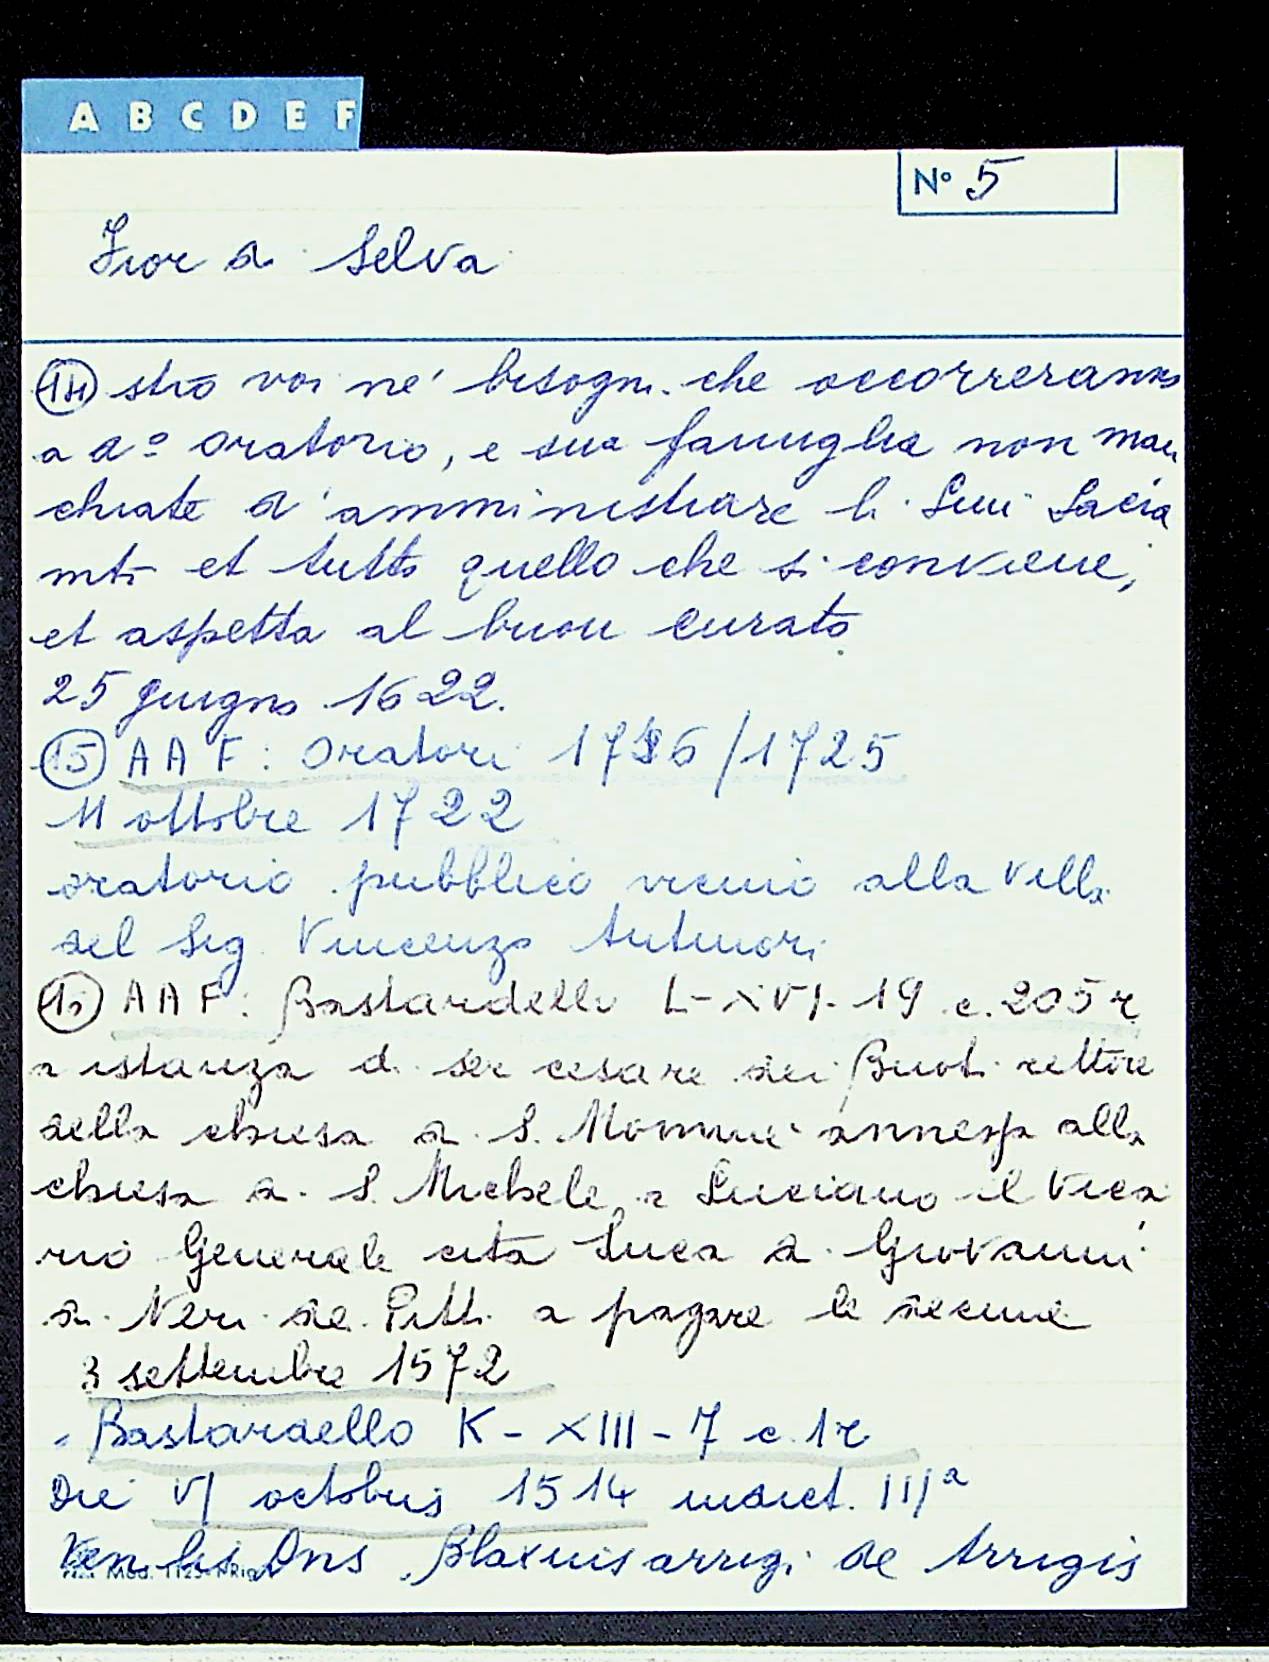 A B C D E F
Nº 5
Fior di Selva
(14) stro voi né bisogni che occorreranno
a dº oratorio, e sua famiglia non man
chiate d'amministrare li Smi Sacra
mti et tutto quello che si conviene,
et aspetta al buon curato
25 giugno 1622.
(15) AAF: Oratori 1716/1725
11 ottobre 1722
oratorio pubblico vicino alla villa
del Sig. Vincenzo Antinori
AAF: Bastardello L-XVI-19 c. 205r
a istanza di ser cesare dei Buoti rettore
della chiesa di S. Mommè annessa alla
chiesa di S. Michele a Luciano il Vica
rio Generale cita Luca di Giovanni
di Neri de Pitti a pagare le decime
3 settembre 1572
Bastardello K-XIII-7 c. 1r
Die VI octobris 1514 indict. IIIª
Ven lis Dns Blaxius arrigi de Arrigis